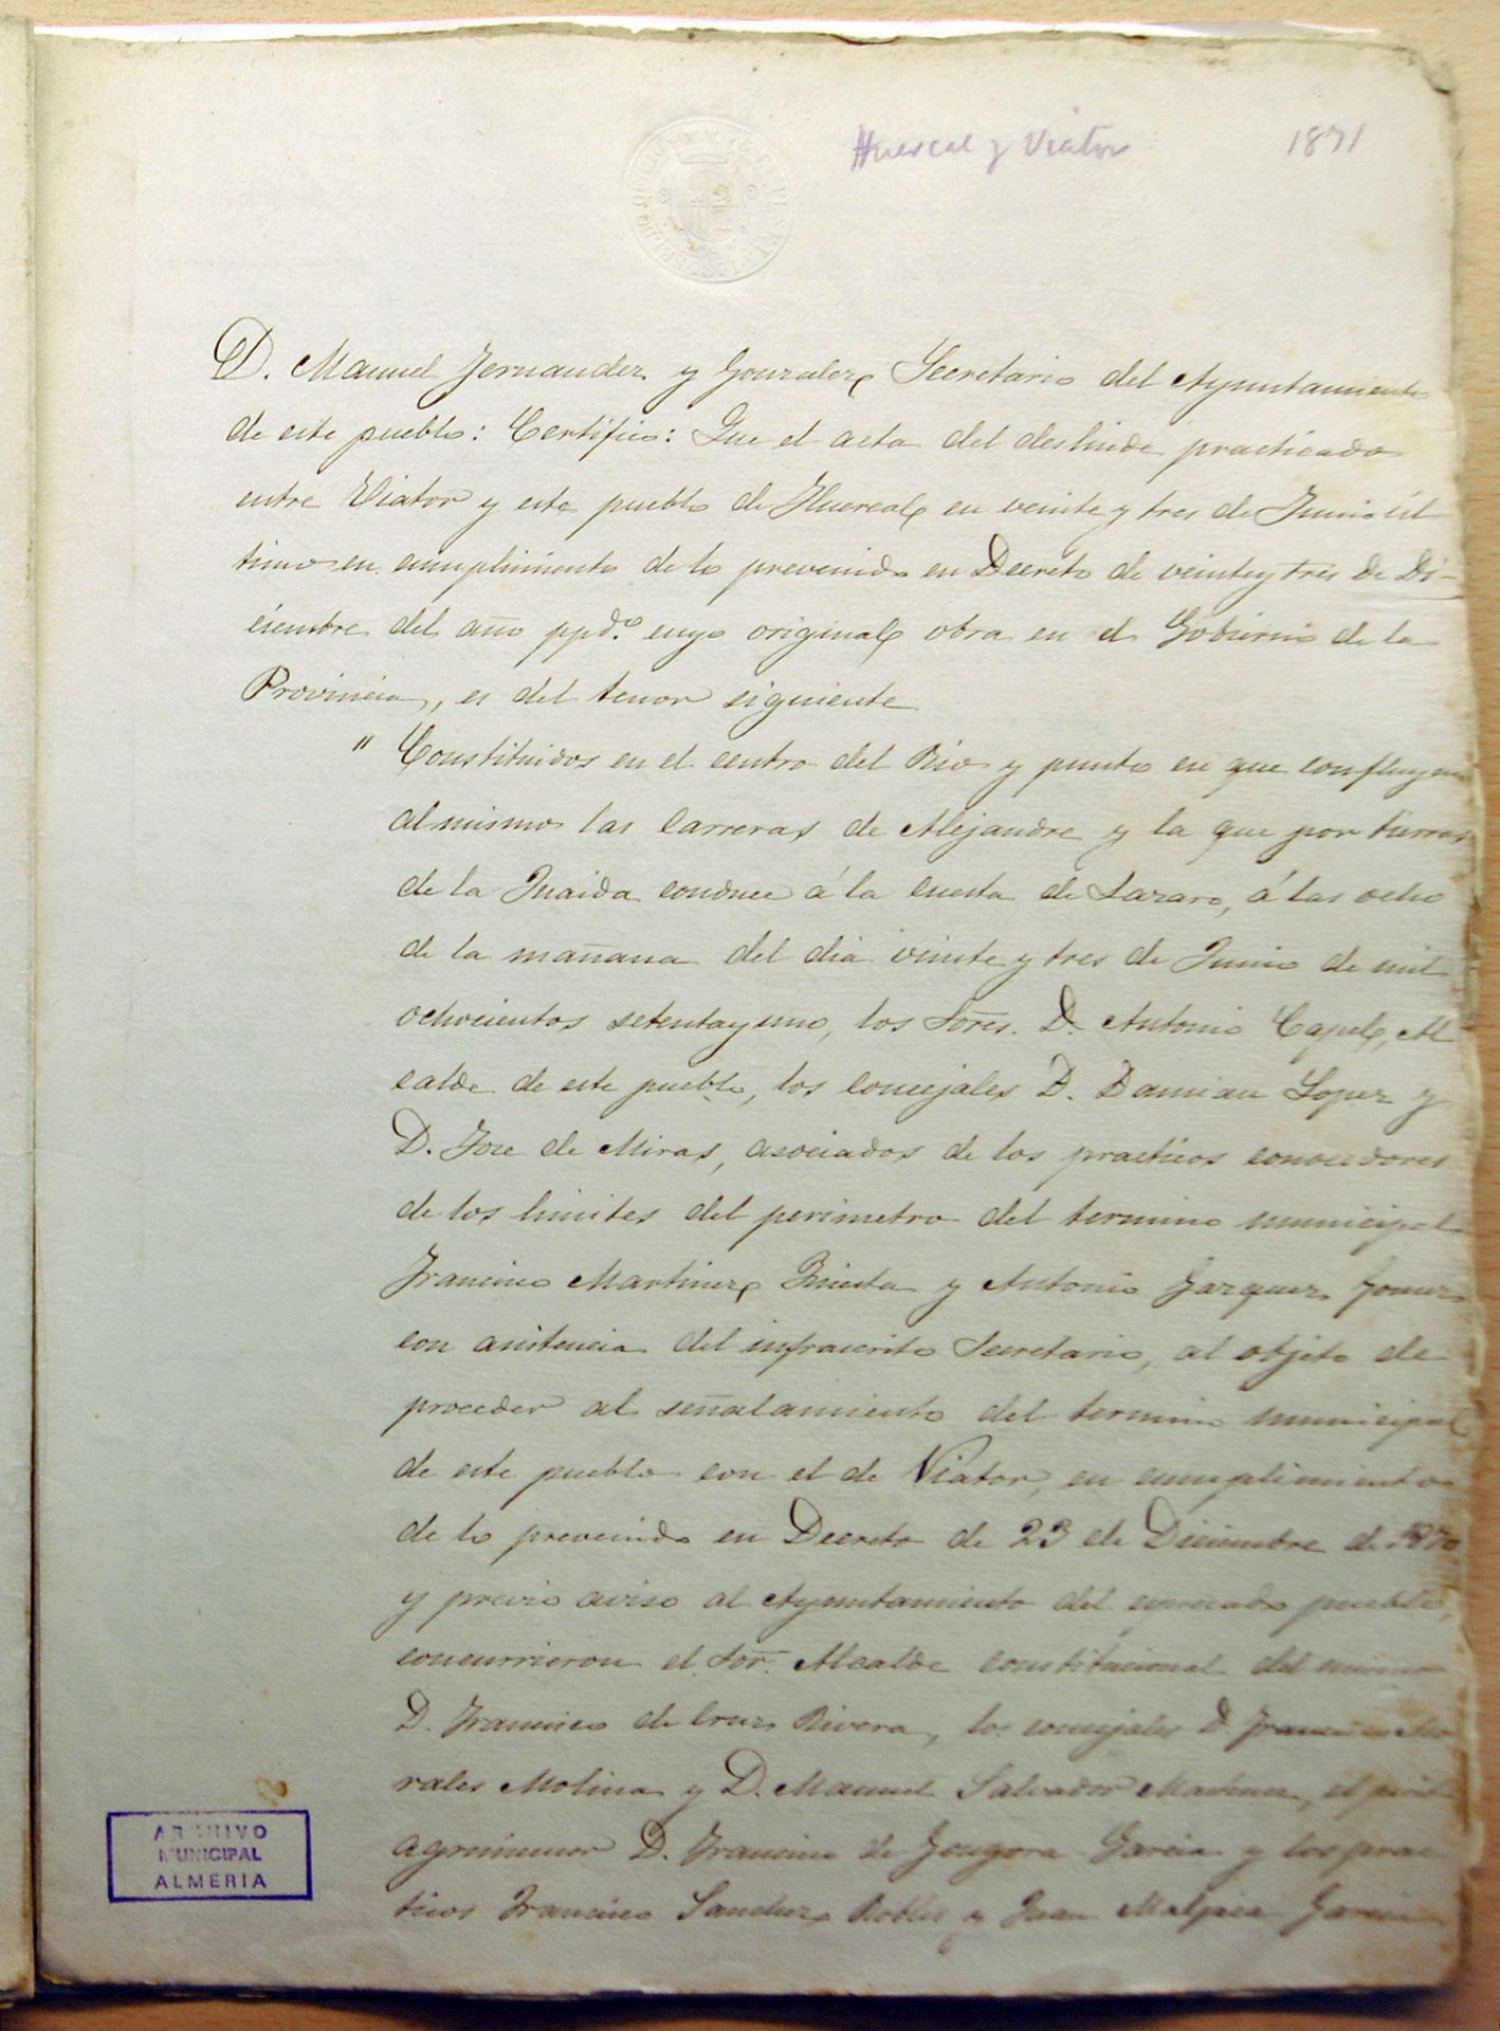 Huercal y Viator 1871
D. Manuel Fernandez y Gonzalez Secretario del Ayuntamiento
de este pueblo: Certifico: Que el acta del deslinde practicado
entre Viator y este pueblo de Huercal en veinte y tres de Junio úl
timo en cumplimiento de lo prevenido en Decreto de veinte y tres de Di-
ciembre del año ppdo. cuyo original obra en el Gobierno de la
Provincia, es del tenor siguiente
" Constituidos en el centro del Rio y punto en que confluyen
al mismo las carreras de Alejandre y la que por tierras
de la Juaida conduce á la cuesta de Lazaro, á las ocho
de la mañana del dia veinte y tres de Junio de mil
ochocientos setenta y uno, los Sores. D. Antonio Capel, Al
calde de este pueblo, los concejales D. Damian Lopez y
D. Jose de Miras, asociados de los practicos conocedores
de los limites del perimetro del termino municipal
Francisco Martinez y Antonio Gazquez Gomez
con asistencia del infrascrito Secretario, al objeto de
proceder al señalamiento del termino municipal
de este pueblo con el de Viator, en cumplimiento
de lo prevenido en Decreto de 23 de Diciembre de 1870
y previo aviso al Ayuntamiento del espresado pueblo,
concurrieron el Sor. Alcalde constitucional del mismo
D. Francisco de Cruz Rivera, los concejales D. Francisco Mo
rales Molina y D. Manuel Salvador Martinez, el perito
agrimensor D. Francisco de Gongora Garcia y los prac
ticos Francisco Sanchez Robles y Juan Garcia
ARCHIVO
MUNICIPAL
ALMERIA